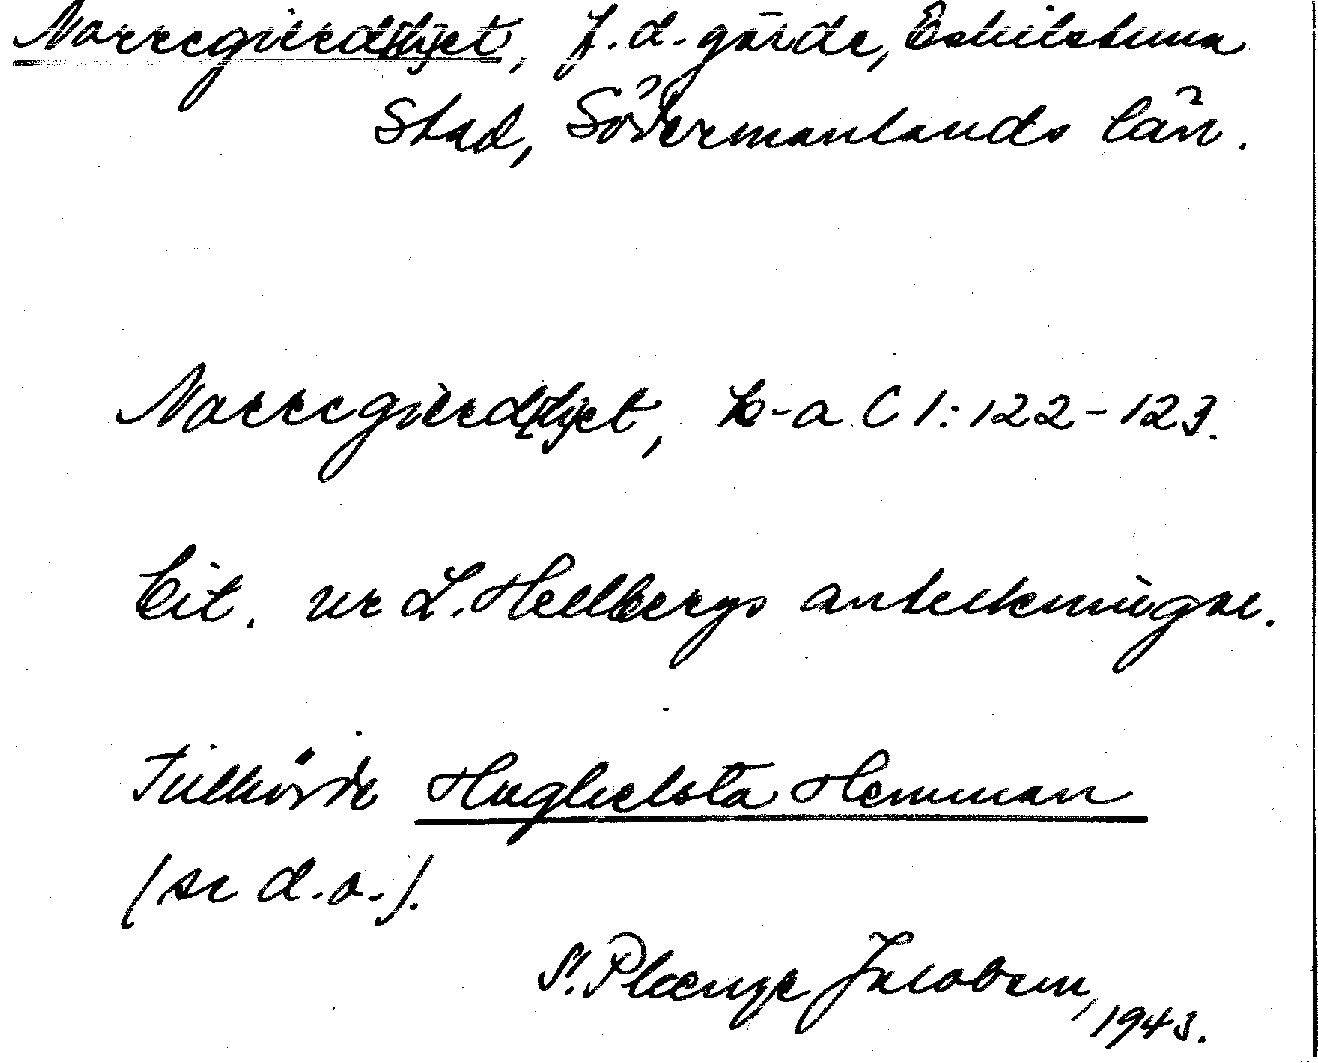 Norregierdhhet, f.d. gärde, Eskilstuna
Stad, Södermanlands län.
Norregierdhhet, k-a C I: 122-123.
Cit. ur L. Hellbergs anteckningar.
Tillhörde Huglielsta Hemman
(se d.o.).
S. Plænge Jacobsen, 1943.